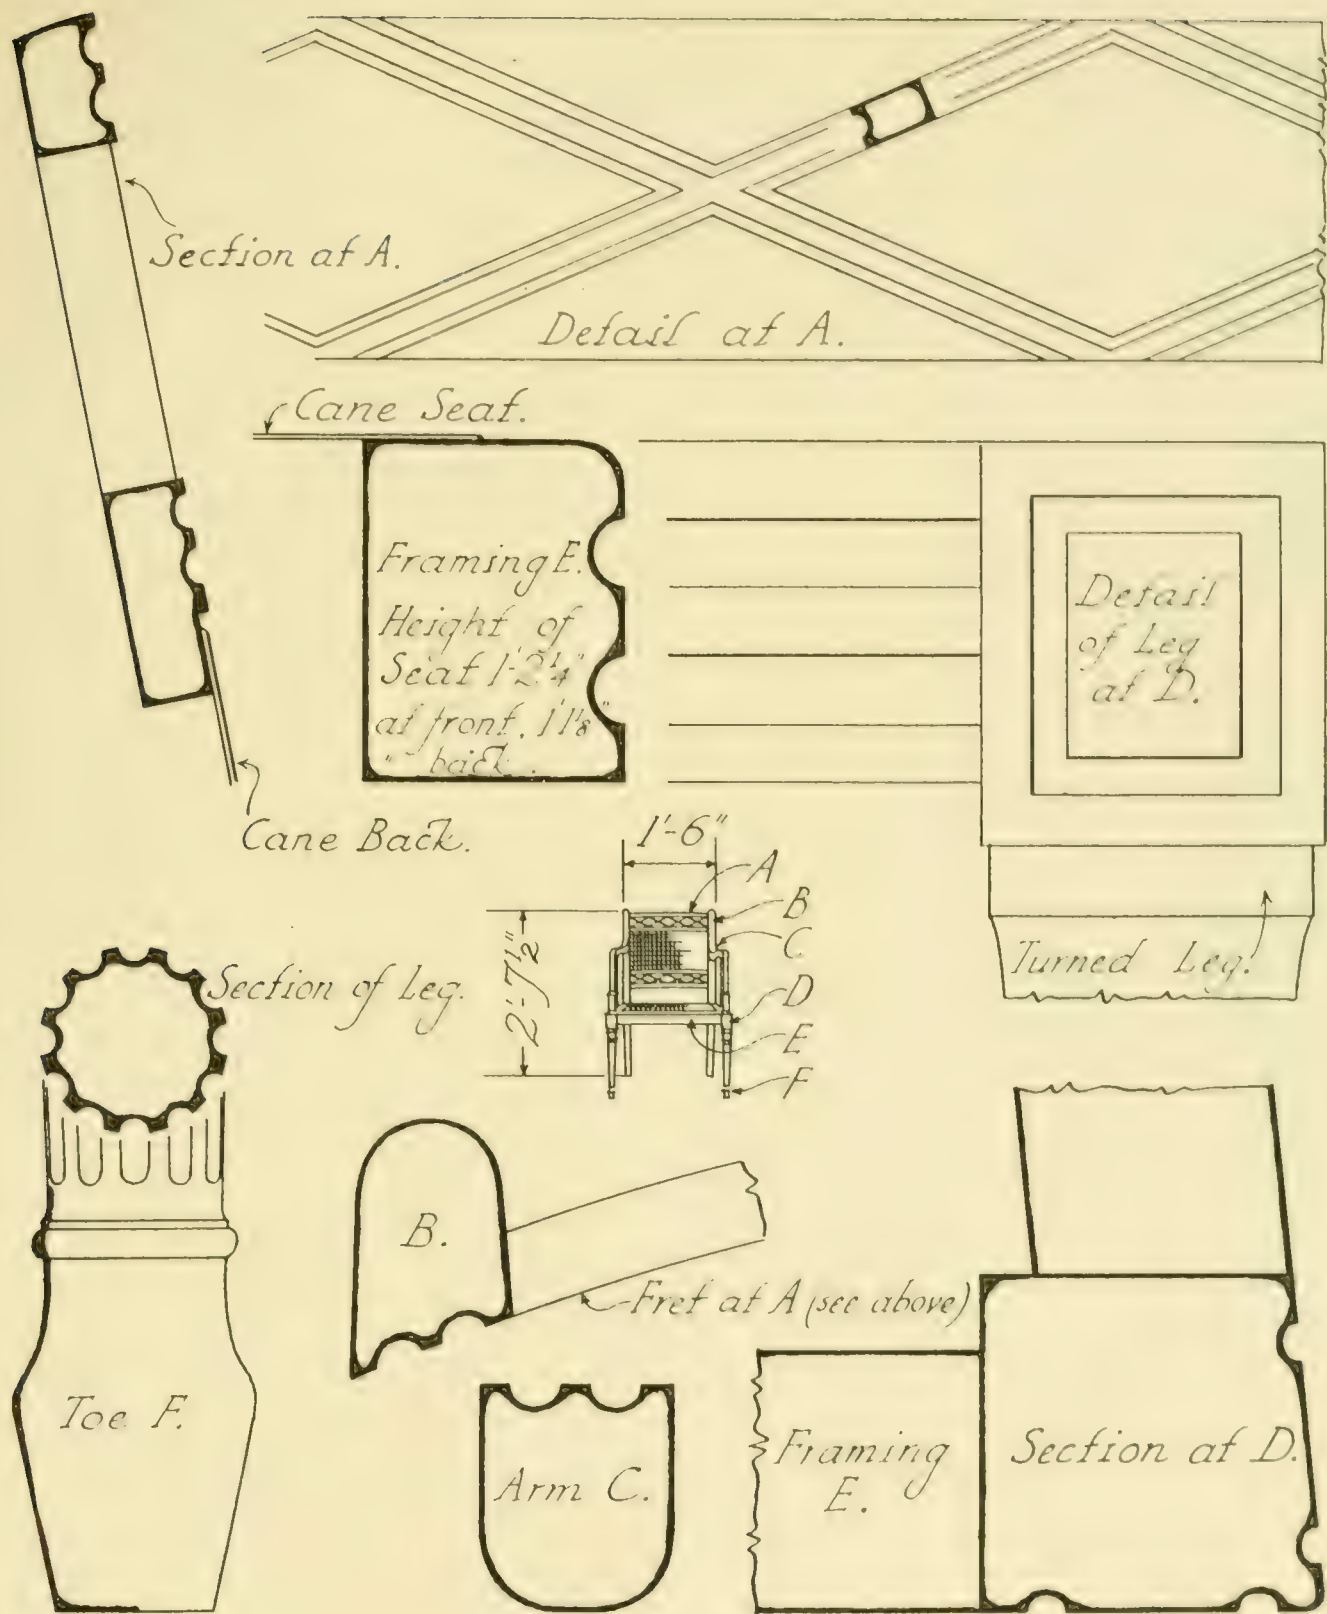 Section at A.
Detail at A.
Cane Seat.
Framing E.
Height of
Seat 1'-2¼"
at front. 1'1⅛"
" back.
Detail
of Leg
at D.
Cane Back.
1'-6"
A
B
C
D
E
F
2'-7½"
Turned Leg.
Section of Leg.
B.
Fret at A (see above)
Toe F.
Arm C.
Framing
E.
Section at D.